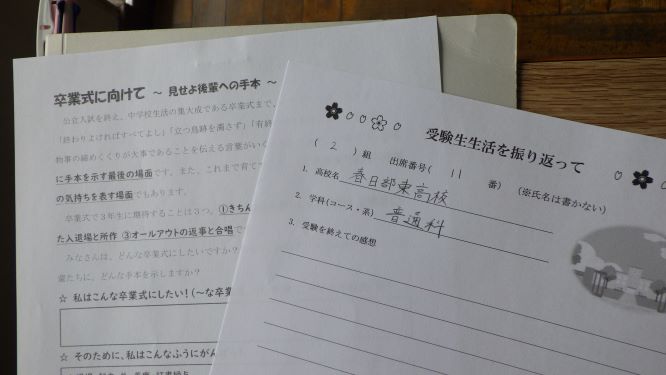 卒業式に向けて ~ 見せよ後輩への手本 ~
公立入試を終え、中学校生活の集大成である卒業式まで、
「終わりよければすべてよし」「立つ鳥跡を濁さず」「有終
物事の締めくくりが大事であることを伝える言葉がいく
に手本を示す最後の場面です。また、これまで育て
の気持ちを表す場面でもあります。
卒業式で3年生に期待することは3つ。①きちん
た入退場と所作 ③オールアウトの返事と合唱で
みなさんは、どんな卒業式にしたいですか?
輩たちに、どんな手本を示しますか?
☆ 私はこんな卒業式にしたい!(~な卒業
☆ そのために、私はこんなふうにがん
受験生生活を振り返って
( 2 )組 出席番号( 11 番) (※氏名は書かない)
1. 高校名 春日部東高校
2. 学科(コース・系) 普通科
3. 受験を終えての感想